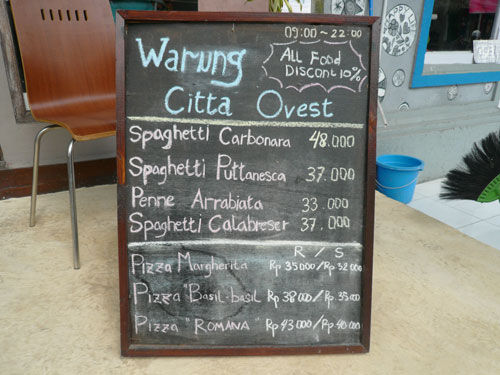 09:00 ~ 22:00
Warung
ALL FOOD
DISCONT 10%
Citta Ovest
Spaghetti Carbonara 48.000
Spaghetti Puttanesca 37.000
Penne Arrabiata 33.000
Spaghetti Calabreser 37.000
R / S
Pizza Margherita Rp 35000/Rp 32000
Pizza "Basil-basil Rp 38000/Rp 35000
Pizza "ROMANA" Rp 43000/Rp 40000